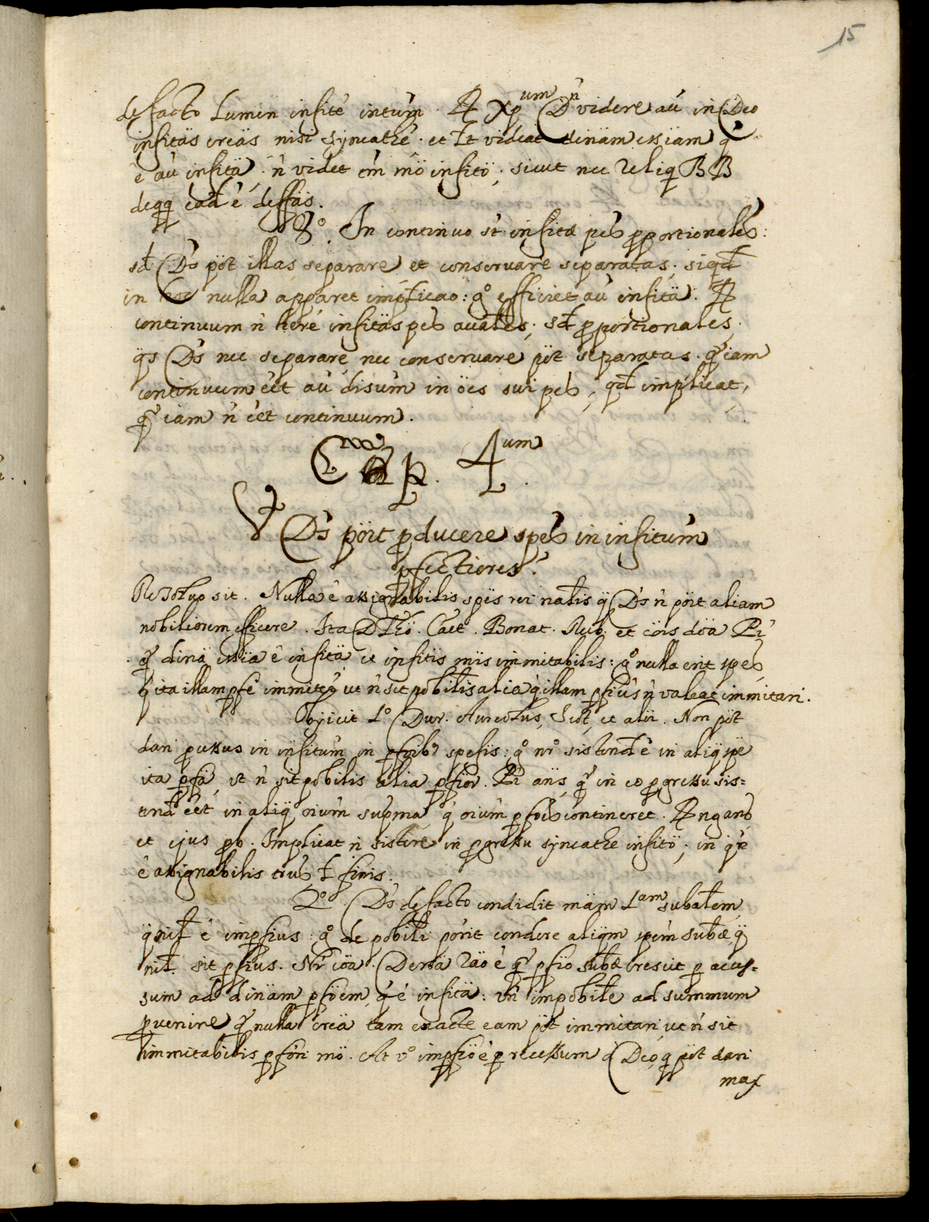 15
de facto Lumen infitè intūm. R Xpum Dn̄ videre aū in Deo
infitäs creäs nisi syncathè. et Lt videat dinäm essiam q̄
ē aū infitä, n̄ videt tn̄ mö infitö; sicut nec reliqi BB
deqq̄ eäd ē deffäs.
3º. In continuo st̄ infitæ ptes pportionales:
sd Ds pöt illas separare et conservare separatas; siqd
in hoc nulla apparet implicaö: gº efficiet aū infitä. R
continuum n̄ hére infitäs ptes aüales, sd pportionales,
qs Ds nec separare, nec conservare pöt separatas. q̄ iam
continuum ēēt aū disum in öes sui ptes, qd implicat,
q̄ iam n̄ ēēt continuum.
Cap. 4um.
Vt Ds pöit pducere spes in infitum
pfectiores.
Resolup sit. Nulla ē assignabilis spës rei nalis q̄ Ds n̄ pöit aliam
nobiliorem efficere. Ita D Thö. Caet. Bonat. Rub. et cöis döa Pr
q̄ dina essia ē infitä et infitis mïs immitabilis: gº nulla erit spes
q̄ ita illam pfe immitet, ut n̄ sit pobilis alia q̄ illam pfius n̄ valeat immitari.
Objicit 1º Dur. Aureolus, Scot, et alii. Non pöt
dari pcessus in infitum in pfoibs spefis: gº nrº sistend ē in aliq̄ spe
ita pfä, ut n̄ sit pobilis alia pfior. Pr ans, q̄ in eo pgressu sis=
tend ēēt in aliq̄ oium supma, q̄ oium pfoes contineret. R ngans
et ejus pb. Implicat n̄ sistere in pgressu syncathe infitö, in q̄
ē assignabilis trus Lt finis.
2º. Ds de facto condidit mäm 1am subalem
q̄ nil ē impfius: gº de pobili pöit condere aliqm spem subæ q̄
nil. sit pfius. Nr cöa. Dertä räö ē q̄ pfio subæ crescit p acces=
sum ad dinäm pfoem, q̄ ē infitä: un̄ impobile ad summum
pvenire q̄ nulla creä tam exacte eam pöt immitari ut n̄ sit
immitabilis pfori mö. At vº impfiö ē p recessum a Deo, q̄ pöt dari
maj